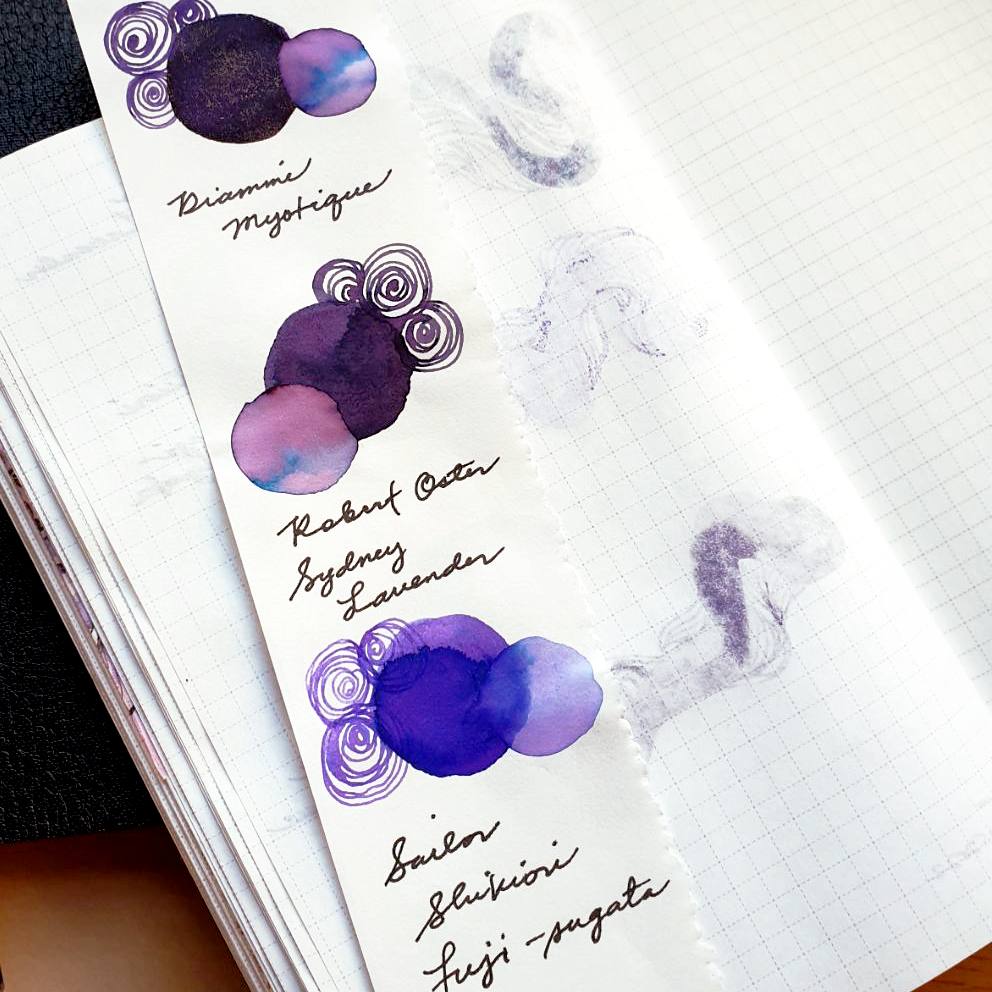 Diamine
Mystique
Robert Oster
Sydney
Lavender
Sailor
Shikiori
Fuji-sugata